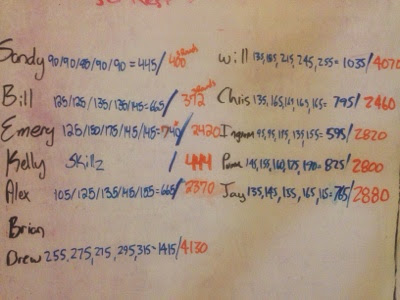 Sandy 90/90/85/90/90 = 445/ 400
Bill 125/125/135/135/145=665/ 392
Emery 125/150/175/145/145=740/2420
Kelly Skillz / 444
Alex 105/125/135/145/155=665/2370
Brian
Drew 255,275,275,295,315=1415/4130
Will 135,185,215,245,255=1035/4070
Chris 135,165,165,165,165= 795/2460
Ingrum 95,95,115,135,155= 595/2820
145,155,160,175,190= 825/2800
Jay 135,145,155,165,165=765/2880